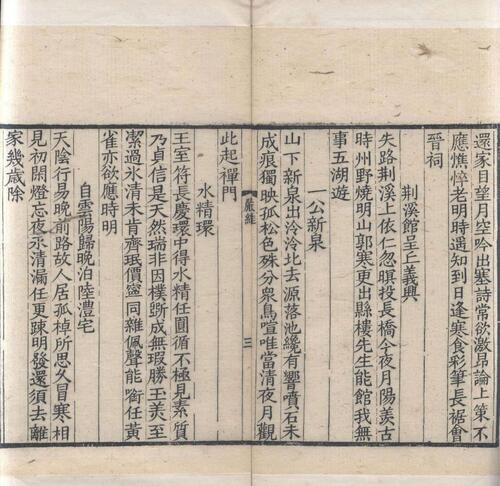 還家日望月空吟出塞詩常欲激昂論上策不
應憔悴老明時遥知到日逢寒食彩筆長裾會
晉祠
荆溪館呈丘義興
失路荆溪上依仁忽暝投長橋今夜月陽羨古
時州野燒明山郭寒更出縣樓先生能館我無
事五湖遊
一公新泉
山下新泉出泠泠北去源落池纔有響噴石未
成痕獨映孤松色殊分衆鳥喧唯當清夜月觀
此起禪門
嚴維
三
水精環
王室符長慶環中得水精任圓循不極見素質
乃貞信是天然瑞非因樸斲成無瑕勝玉美至
潔過氷清未肯齊珉價寧同雜佩聲能銜任黄
雀亦欲應時明
自雲陽歸晚泊陸澧宅
天陰行易晚前路故人居孤棹所思久冒寒相
見初閑燈忘夜永清漏任更踈明發還須去離
家幾歲除